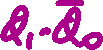 Q₁·Q̅₀